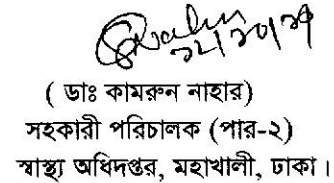 ২১/১০/২৭
( ডাঃ কামরুন নাহার)
সহকারী পরিচালক (পার-২)
স্বাস্থ্য অধিদপ্তর, মহাখালী, ঢাকা।